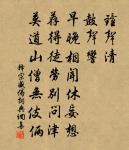 鐘聲清
鼓聲響
早晚相聞休妄想
薦得徒勞別問津
莫道山僧無伎倆
釋宗盛偈頌與調其一